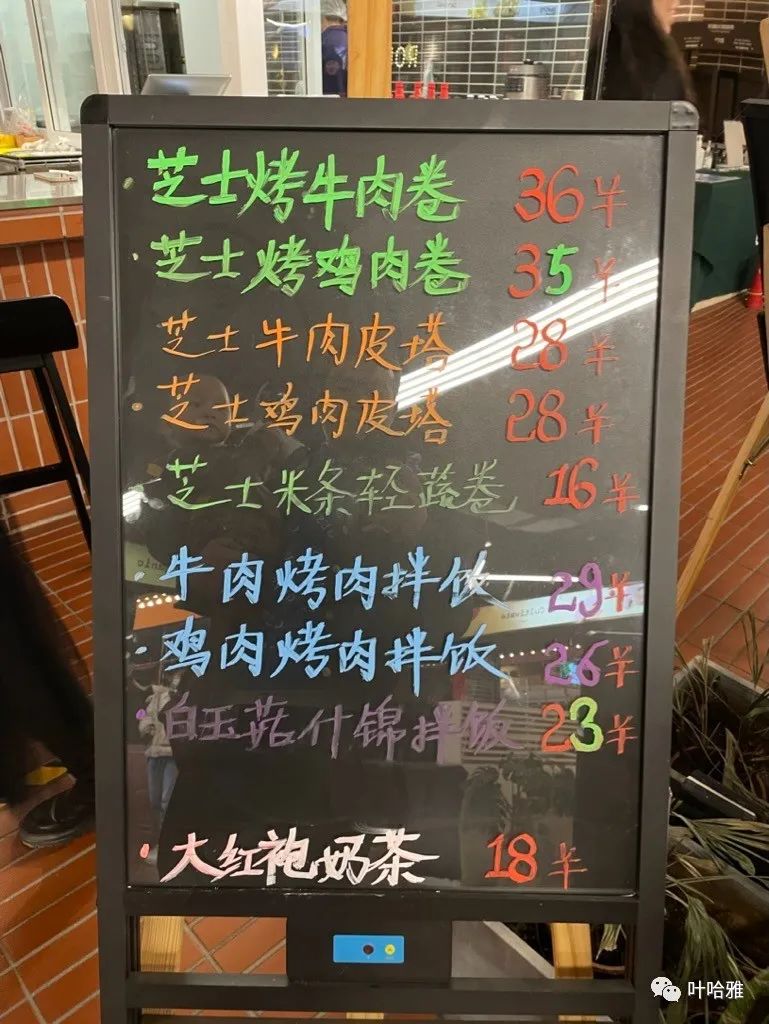 芝士烤牛肉卷 36¥
芝士烤鸡肉卷 35¥
芝士牛肉皮塔 28¥
芝士鸡肉皮塔 28¥
芝士米条轻蔬卷 16¥
牛肉烤肉拌饭 29¥
鸡肉烤肉拌饭 26¥
白玉菇什锦拌饭 23¥
大红袍奶茶 18¥
叶哈雅